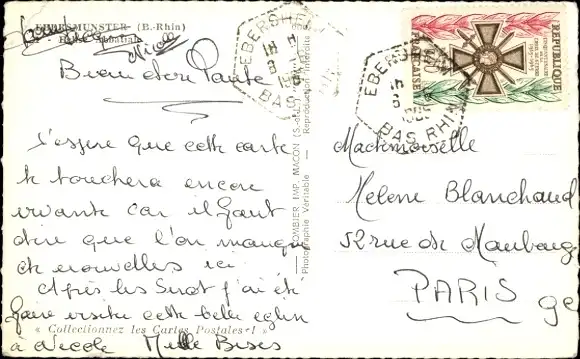 EBERSMUNSTER (B.-Rhin)
Eglise Abbatiale
Nicole
J'espère que cette carte
te touchera encore
vivante car il faut
dire que l'on manque
de nouvelles ici
Après les j'ai été
faire visite cette belle eglise
« Collectionnez les Cartes Postales ! »
à Nicole Mille Bises
COMBIER IMP. MACON (S.-et-L.)
Photographie Véritable — Reproduction Interdite
EBERSHEIM
BAS RHIN
EBERSHEIM
BAS RHIN
REPUBLIQUE
FRANÇAISE
Mademoiselle
Helene Blanchaud
52 rue de Maubeuge
PARIS 9e